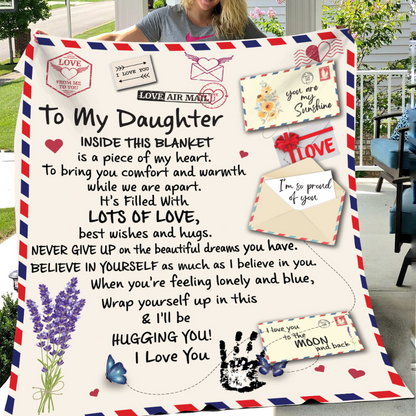 LOVE
FROM ME
TO YOU
I LOVE YOU
LOVE AIR MAIL
you are
my
Sunshine
To My Daughter
LOVE
INSIDE THIS BLANKET
is a piece of my heart.
To bring you comfort and warmth
while we are apart.
It's Filled With
LOTS OF LOVE,
best wishes and hugs.
NEVER GIVE UP on the beautiful dreams you have.
BELIEVE IN YOURSELF as much as I believe in you.
When you're feeling lonely and blue,
Wrap yourself up in this
& I'll be
HUGGING YOU!
I Love You
I'm so proud
of you
I love you
to the
MOON
and back